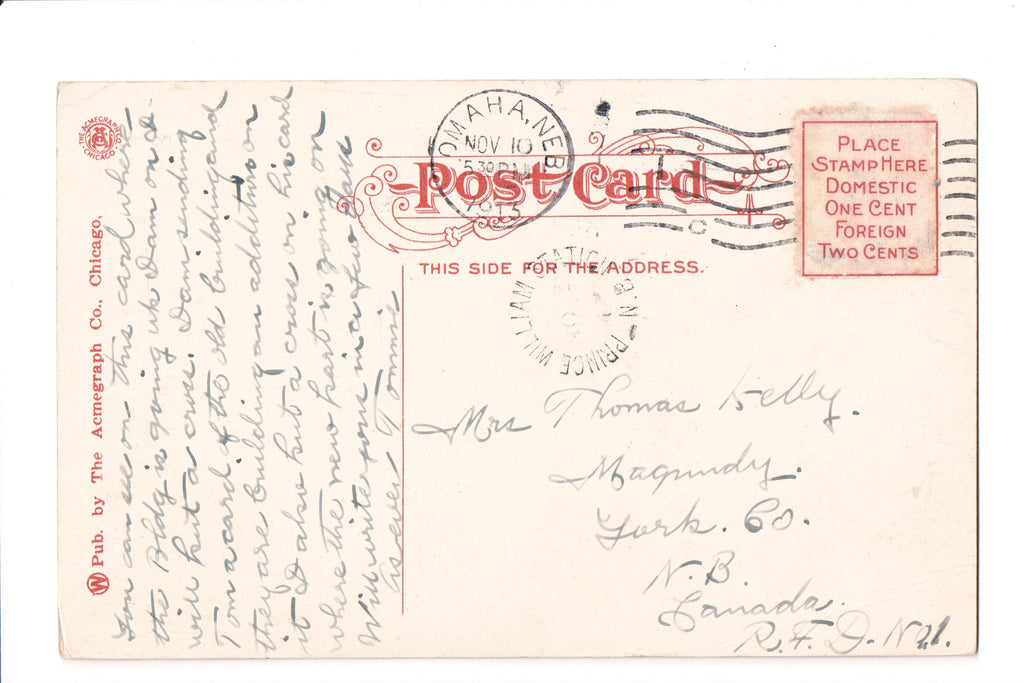 THE ACMEGRAPH CO
CHICAGO
W Pub. by The Acmegraph Co., Chicago,
OMAHA, NEB
NOV 10
5 30 PM
1913
Post Card
THIS SIDE FOR THE ADDRESS.
PLACE
STAMP HERE
DOMESTIC
ONE CENT
FOREIGN
TWO CENTS
PRINCE WILLIAM STATION N.B
You can see on this card where
the Bldg is going up I am on it
will put a cross. I am sending
Tom a card of the old building and
they are building an addition on
it I also put a cross on his card
where the new part is going on
Will write you in a few days
As ever Tommie
Mrs Thomas Kelly.
Magundy.
York. Co.
N. B.
Canada.
R. F. D. No 1.